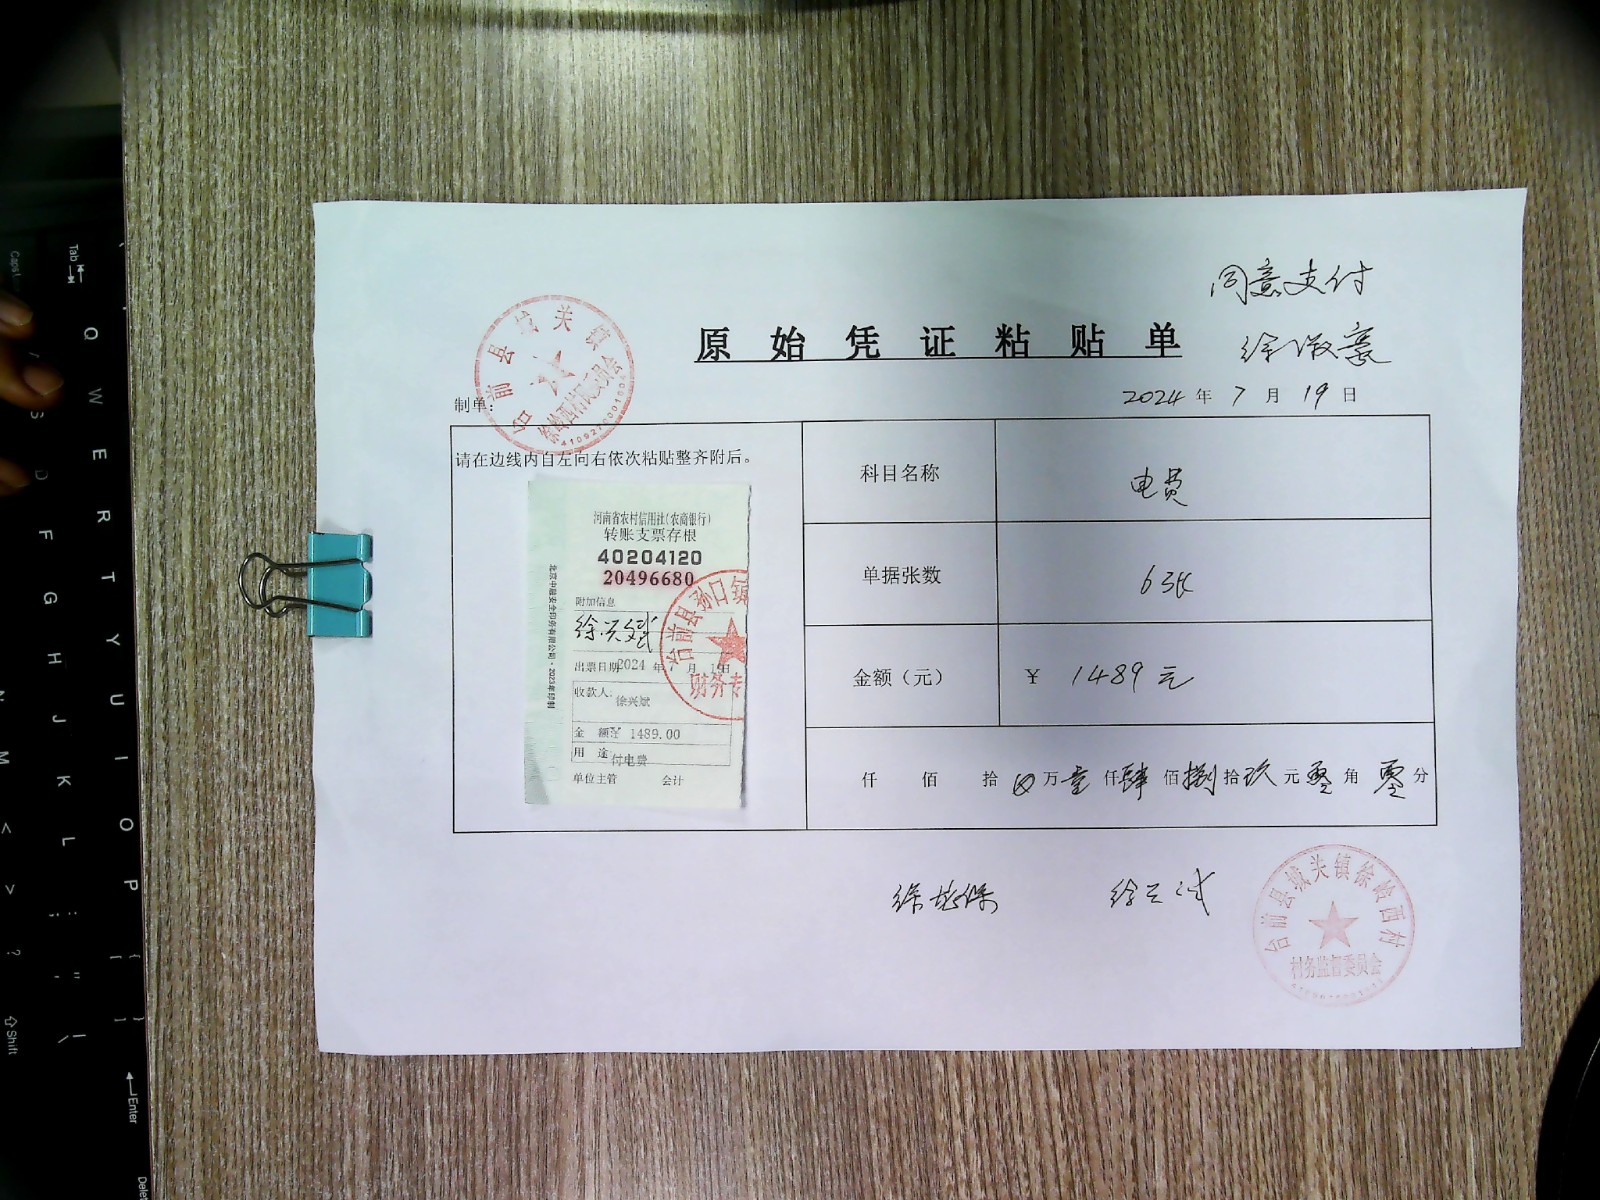 同意支付
原始凭证粘贴单
台前县城关镇
徐岭西村民委员会
制单：
2024年7月19日
请在边线内自左向右依次粘贴整齐附后。
科目名称 电费
单据张数 6张
金额（元） ¥ 1489元
仟 佰 拾 万壹仟肆佰捌拾玖元零角零分
河南省农村信用社(农商银行)
转账支票存根
40204120
20496680
附加信息
徐兴斌
出票日期2024年 月 日
收款人：
徐兴斌
金 额 1489.00
用 途 付电费
单位主管 会计
北京中融安全印务有限公司·2023年印制
台前县孙口镇
财务专
台前县城关镇徐岭西村
村务监督委员会
Tab
Caps
Q
W
E
R
T
Y
U
I
O
P
S
D
F
G
H
J
K
L
N
M
Shift
Enter